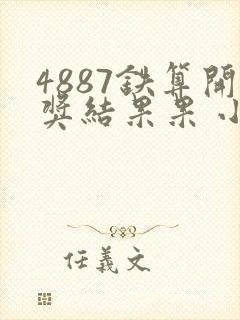 4887鉄算開
奖結果果小
任義文